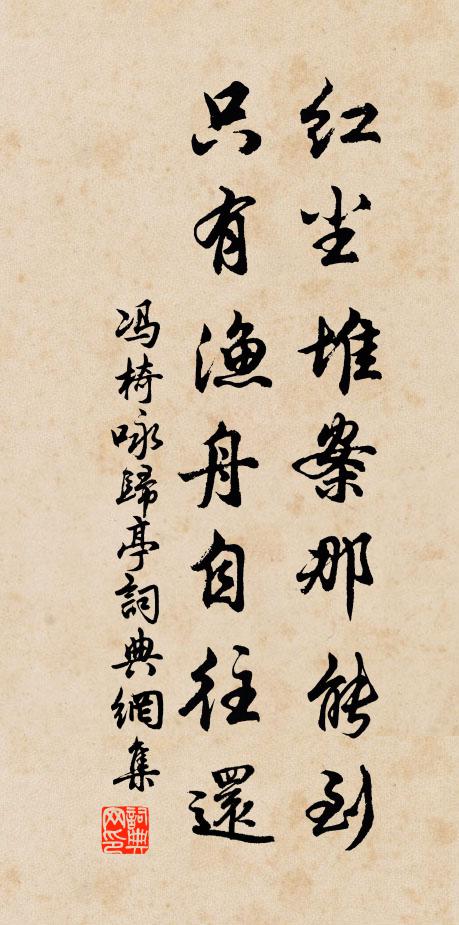 红尘堆案那能到
只有漁舟自往還
冯椅咏歸亭詞典網集
詞典网印